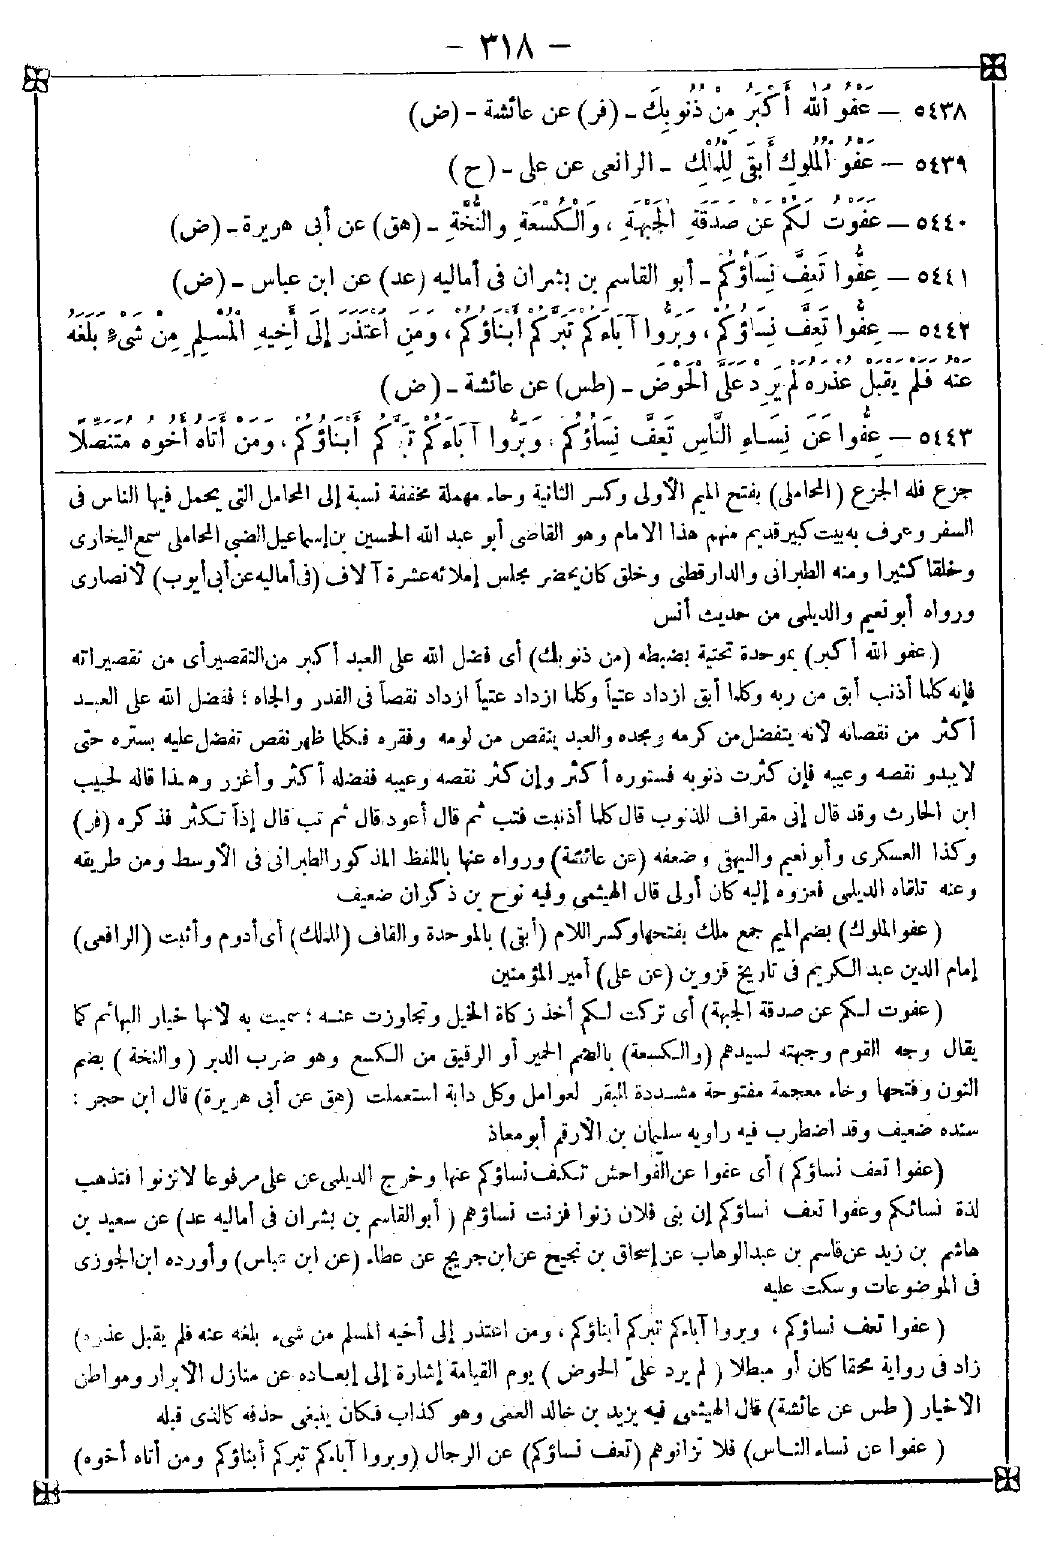 - ٣١٨ -
٥٤٣٨ - عَفْوُ اللهِ أَكْبَرُ مِنْ ذُنُوبِكَ - (فر) عن عائشة - (ض)
٥٤٣٩ - عَفْوُ الْمُلُوكِ أَبْقَى لِلْمُلْكِ - الرافعى عن على - (ح)
٥٤٤٠ - عَفَوْتُ لَكُمْ عَنْ صَدَقَةِ الْجَبْهَةِ ، وَالْكُسْعَةِ وَالنُّخَّةِ - (هق) عن أبى هريرة - (ض)
٥٤٤١ - عِفُّوا تَعِفَّ نِسَاؤُكُمْ - أبو القاسم بن بشران فى أماليه (عد) عن ابن عباس - (ض)
٥٤٤٢ - عِفُّوا تَعِفَّ نِسَاؤُكُمْ ، وَبَرُّوا آبَاءَكُمْ تَبَرَّكُمْ أَبْنَاؤُكُمْ ، وَمَنِ اعْتَذَرَ إِلَى أَخِيهِ الْمُسْلِمِ مِنْ شَىْءٍ بَلَغَهُ
عَنْهُ فَلَمْ يَقْبَلْ عُذْرَهُ لَمْ يَرِدْ عَلَىَّ الْحَوْضَ - (طس) عن عائشة - (ض)
٥٤٤٣ - عِفُّوا عَنْ نِسَاءِ النَّاسِ تَعِفَّ نِسَاؤُكُمْ ، وَبَرُّوا آبَاءَكُمْ تَبَرَّكُمْ أَبْنَاؤُكُمْ ، وَمَنْ أَتَاهُ أَخُوهُ مُتَنَصِّلًا
جزع فله الجزع (المحاملى) بفتح الميم الأولى وكسر الثانية وحاء مهملة مخففة نسبة إلى المحامل التى يحمل فيها الناس فى
السفر وعرف به بيت كبير قديم منهم هذا الامام وهو القاضى أبو عبد الله الحسين بن إسماعيل الضبى المحاملى سمع البخارى
وخلقا كثيرا ومنه الطبرانى والدارقطنى وخلق كان يحضر مجلس إملائه عشرة آلاف (فى أماليه عن أبى أيوب) لانصارى
ورواه أبو نعيم والديلمى من حديث أنس
(عفو الله أكبر) بموحدة تحتية بضبطه (من ذنوبك) أى فضل الله على العبد أكبر من التقصير أى من تقصيراته
فإنه كلما أذنب أبق من ربه وكلما أبق ازداد عتياً وكلما ازداد عتياً ازداد نقصاً فى القدر والجاه ؛ ففضل الله على العبد
أكثر من نقصانه لانه يتفضل من كرمه ومجده والعبد ينقص من لومه وفقره فكلما ظهر نقص تفضل عليه بستره حتى
لايبدو نقصه وعيبه فإن كثرت ذنوبه فستوره أكثر وإن كثر نقصه وعيبه ففضله أكثر وأغزر وهذا قاله لحبيب
ابن الحارث وقد قال إنى مقراف للذنوب قال كلما أذنبت فتب ثم قال أعود قال ثم تب قال إذاً تكثر فذكره (فر)
وكذا العسكرى وأبو نعيم والبيهقى وضعفه (عن عائشة) ورواه عنها باللفظ المذكور الطبرانى فى الأوسط ومن طريقه
وعنه تلقاه الديلمى فعزوه إليه كان أولى قال الهيثمى وفيه نوح بن ذكران ضعيف
(عفو الملوك) بضم الميم جمع ملك بفتحها وكسر اللام (أبقى) بالموحدة والقاف (للملك) أى أدوم وأثبت (الرافعى)
إمام الدين عبد الكريم فى تاريخ قزوين (عن على) أمير المؤمنين
(عفوت لكم عن صدقة الجبهة) أى تركت لكم أخذ زكاة الخيل وتجاوزت عنه ؛ سميت به لانها خيار البهائم كما
يقال وجه القوم وجبهته لسيدهم (والكسعة) بالضم الحمير أو الرقيق من الكسع وهو ضرب الدبر (والنخة) بضم
النون وفتحها وخاء معجمة مفتوحة مشددة البقر لعوامل وكل دابة استعملت (هق عن أبى هريرة) قال ابن حجر :
سنده ضعيف وقد اضطرب فيه راويه سليمان بن الأرقم أبو معاذ
(عفوا تعف نساؤكم) أى عفوا عن الفواحش تكف نساؤكم عنها وخرج الديلمى عن على مرفوعا لاتزنوا فتذهب
لذة نسائكم وعفوا تعف نساؤكم إن بنى فلان زنوا فزنت نساؤهم (أبو القاسم بن بشران فى أماليه عد) عن سعيد بن
هاشم بن زيد عن قاسم بن عبد الوهاب عن إسحاق بن نجيح عن ابن جريج عن عطاء (عن ابن عباس) وأورده ابن الجوزى
فى الموضوعات وسكت عليه
(عفوا تعف نساؤكم ، وبروا آباءكم تبركم أبناؤكم ، ومن اعتذر إلى أخيه المسلم من شىء بلغه عنه فلم يقبل عذره)
زاد فى رواية محقا كان أو مبطلا (لم يرد علىّ الحوض) يوم القيامة إشارة إلى إبعاده عن منازل الابرار ومواطن
الاخيار (طس عن عائشة) قال الهيثمى فيه يزيد بن خالد العمى وهو كذاب فكان ينبغى حذفه كالذى قبله
(عفوا عن نساء الناس) فلا تزانوهم (تعف نساؤكم) عن الرجال (وبروا آباءكم تبركم أبناؤكم ومن أتاه أخوه)